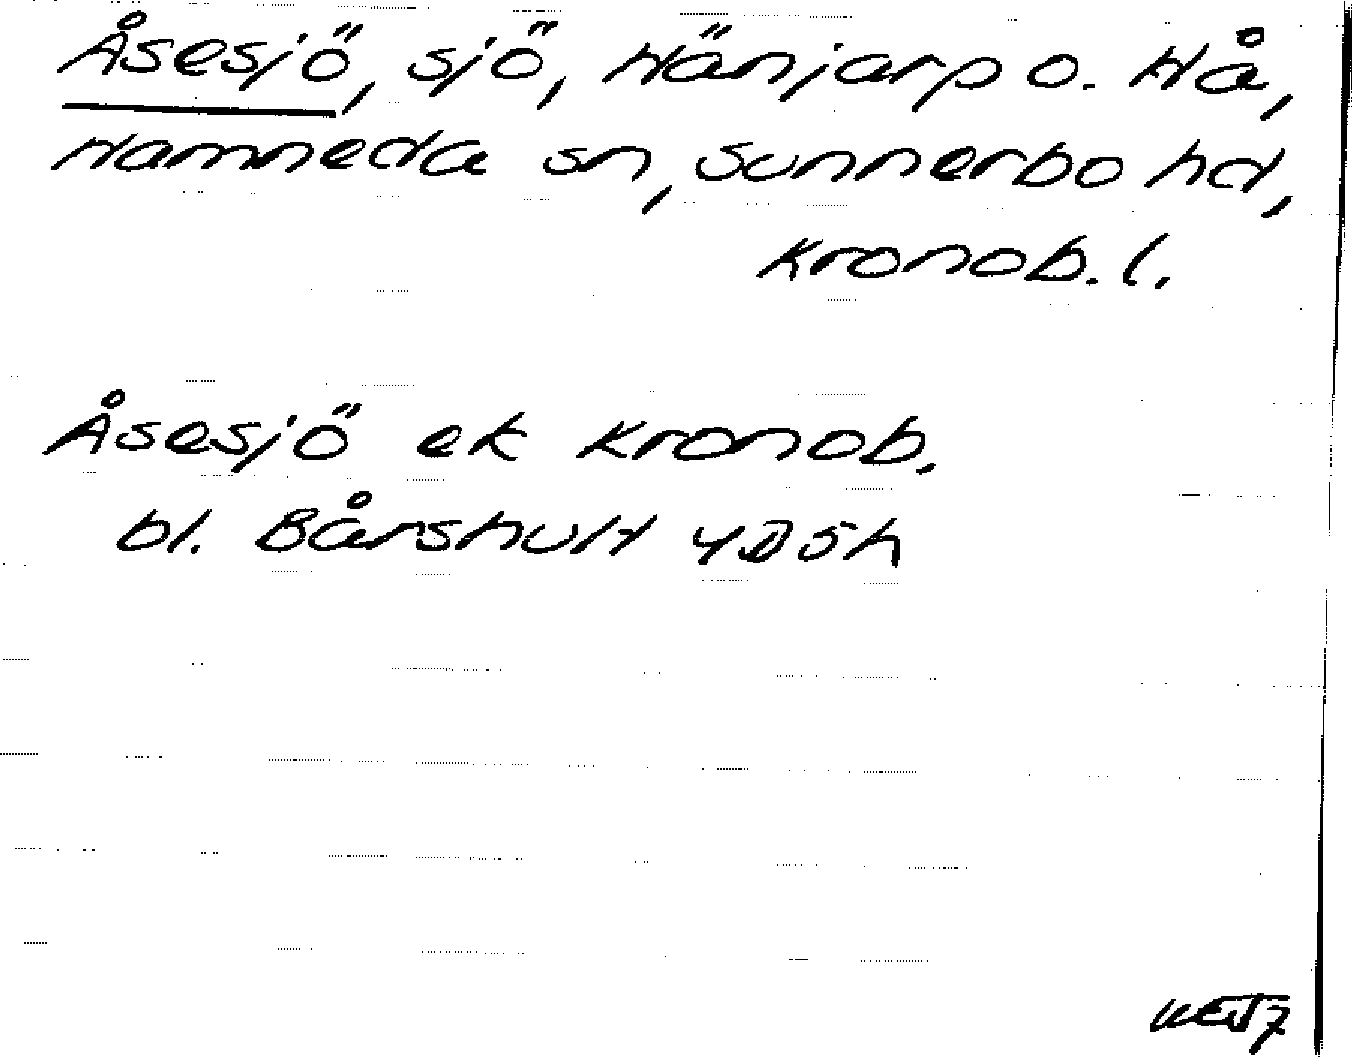 Åsesjö, sjö, Hänjarp o. Hå,
Hamneda sn, Sunnerbo hd,
Kronob. l.
Åsesjö ek Kronob.
bl. Bårshult 4D5h